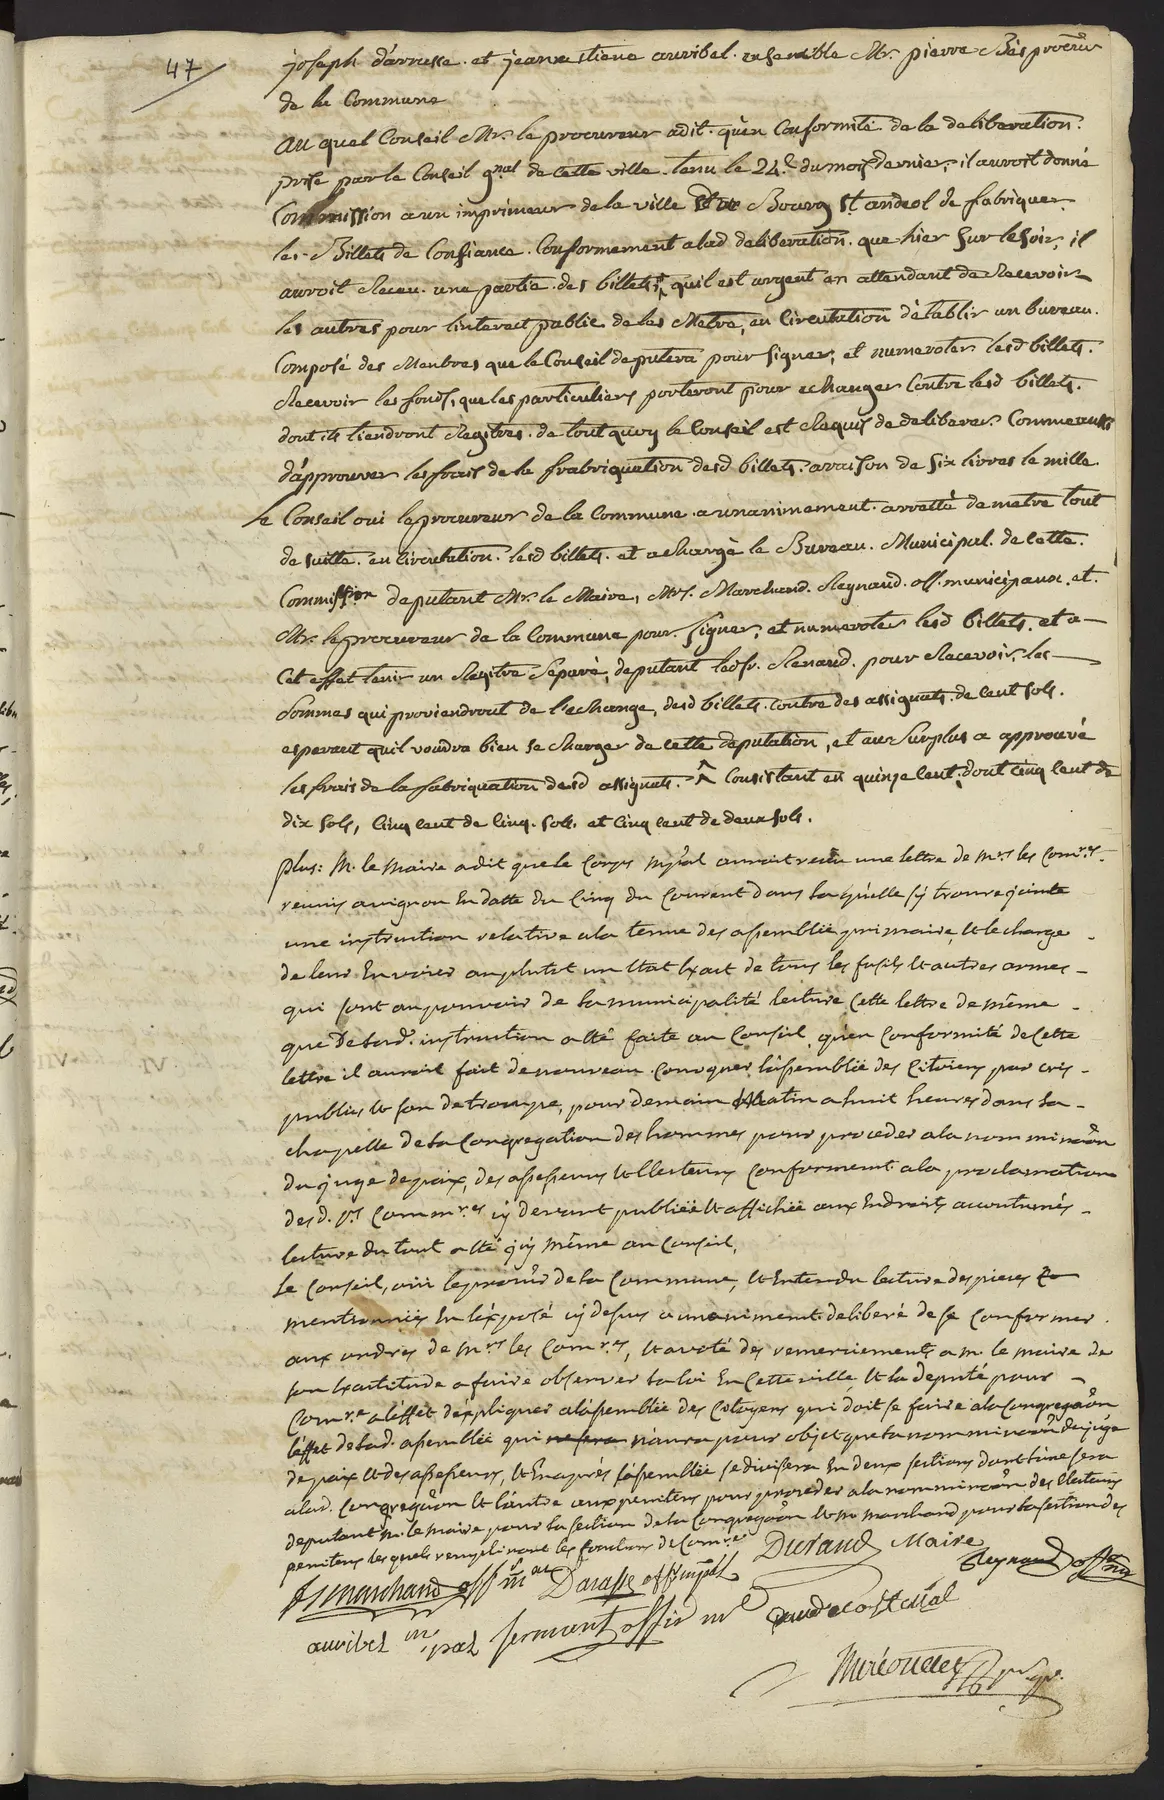 47
joseph d'arrusse. et jean etiene auvibel. ensemble Mr. pierre Bès procur
de la Commune
au quel Conseil Mr. le procureur adit. qu'en Conformité de la deliberation.
prise par le Conseil gnal de cette ville. tenu le 24.e du mois dernier, il auroit donné
Commission a un imprimeur de la ville de Bourg St. andeol de fabriquer
les Billets de Confiance. Conformement alad deliberation. que hier sur le soir, il
auroit Receu. une partie. des billets, quil est urgent en attendant de Recevoir
les autres pour linterect public de les Metre, en Circulation d'etablir un bureau.
Composé des Membres que le Conseil deputera pour signer, et numeroter lesd billets.
Recevoir les fonds, que les particuliers porteront pour echanger Contre lesd billets.
dont ils tiendront Registres. de tout quoy le Conseil est Requis de deliberer. Comme aussi
d'approuver les frais de la frabriquation desd billets. a raison de six livres le mille.
le Conseil oui le procureur de la Commune. a unanimement. arretté de metre tout
de suitte. en Circulation. lesd billets. et a chargé le Bureau. Municipal. de cette.
Commission deputant Mr. le Maire, Mrs. Marchand. Reynaud. off. municipaux. et.
Mr. le procureur de la Commune pour. signer, et numeroter lesd billets. et a
Cet effet tenir un Registre separé, deputant ledsr. Renaud. pour Recevoir, les
sommes qui proviendront de l'echange, desd billets. contre des assignats. de Cent sols.
esperant quil voudra bien se charger de cette deputation, et au surplus a approuvé
les frais de la fabriquation desd assignats. Consistant en quinze Cent, dont Cinq Cent de
dix sols, Cinq Cent de Cinq. sols. et Cinq Cent de deux sols.
plus: M. le maire a dit que le Corps mpal auroit reçu une lettre de mrs les Comres.
reunis avignon En datte du Cinq du Courent dans la quelle sy trouve jointe
une instruction relative ala tenue des assemblée primaire, et le charge
de leur Envoier au plutot un Etat Exact de tous les fusils et autres armes
qui sont au pouvoir de la municipalité lecture Cette lettre de même
que de lad. instruction a été faite au Conseil, qu'en Conformité de Cette
lettre il auroit fait de nouveau. Convoquer l'assemblée des Citoiens par cris
publics et son de trompe, pour demain Matin a huit heures dans la
chapelle de la Congregation des hommes pour proceder a la nomminaôn
du juge de paix, des assesseurs et Electeurs Conformement a la proclamation
des d. srs Commres cy devant publiée et affichée aux Endroits accoutumés
lecture du tout a été icy même au Conseil,
Le Conseil, oui le procur de la Commune, et Entendu lecture des pieces
mentionnées En l'exposé cy dessus a unaniment. deliberé de se Conformer.
aux ordres de mrs les Comres, et a voté des remerciements a m. le maire de
son Exactitude a faire observer la loi En Cette ville, et la deputé pour
Comre a l'effet d'expliquer a l'assemblée des Citoyens qui doit se faire a la Congregaôn
l'effet de lad. assemblée qui n'aura pour objet que la nomminaôn du juge
de paix et des assesseurs, et En après l'assemblée se divisera En deux sections dont l'une sera
a lad. Congregaôn et l'autre aux penitens pour proceder a la nomminaôn des Electeurs
deputant m. le maire pour la section de la Congregaôn et m. marchand pour la section des
penitens les quels rempliront les fonctions de Comre
Durand Maire
Reynaud off. m
marchand off mal Darasse off mpal
auvibel m. pal serment offic ml
Mireouclet